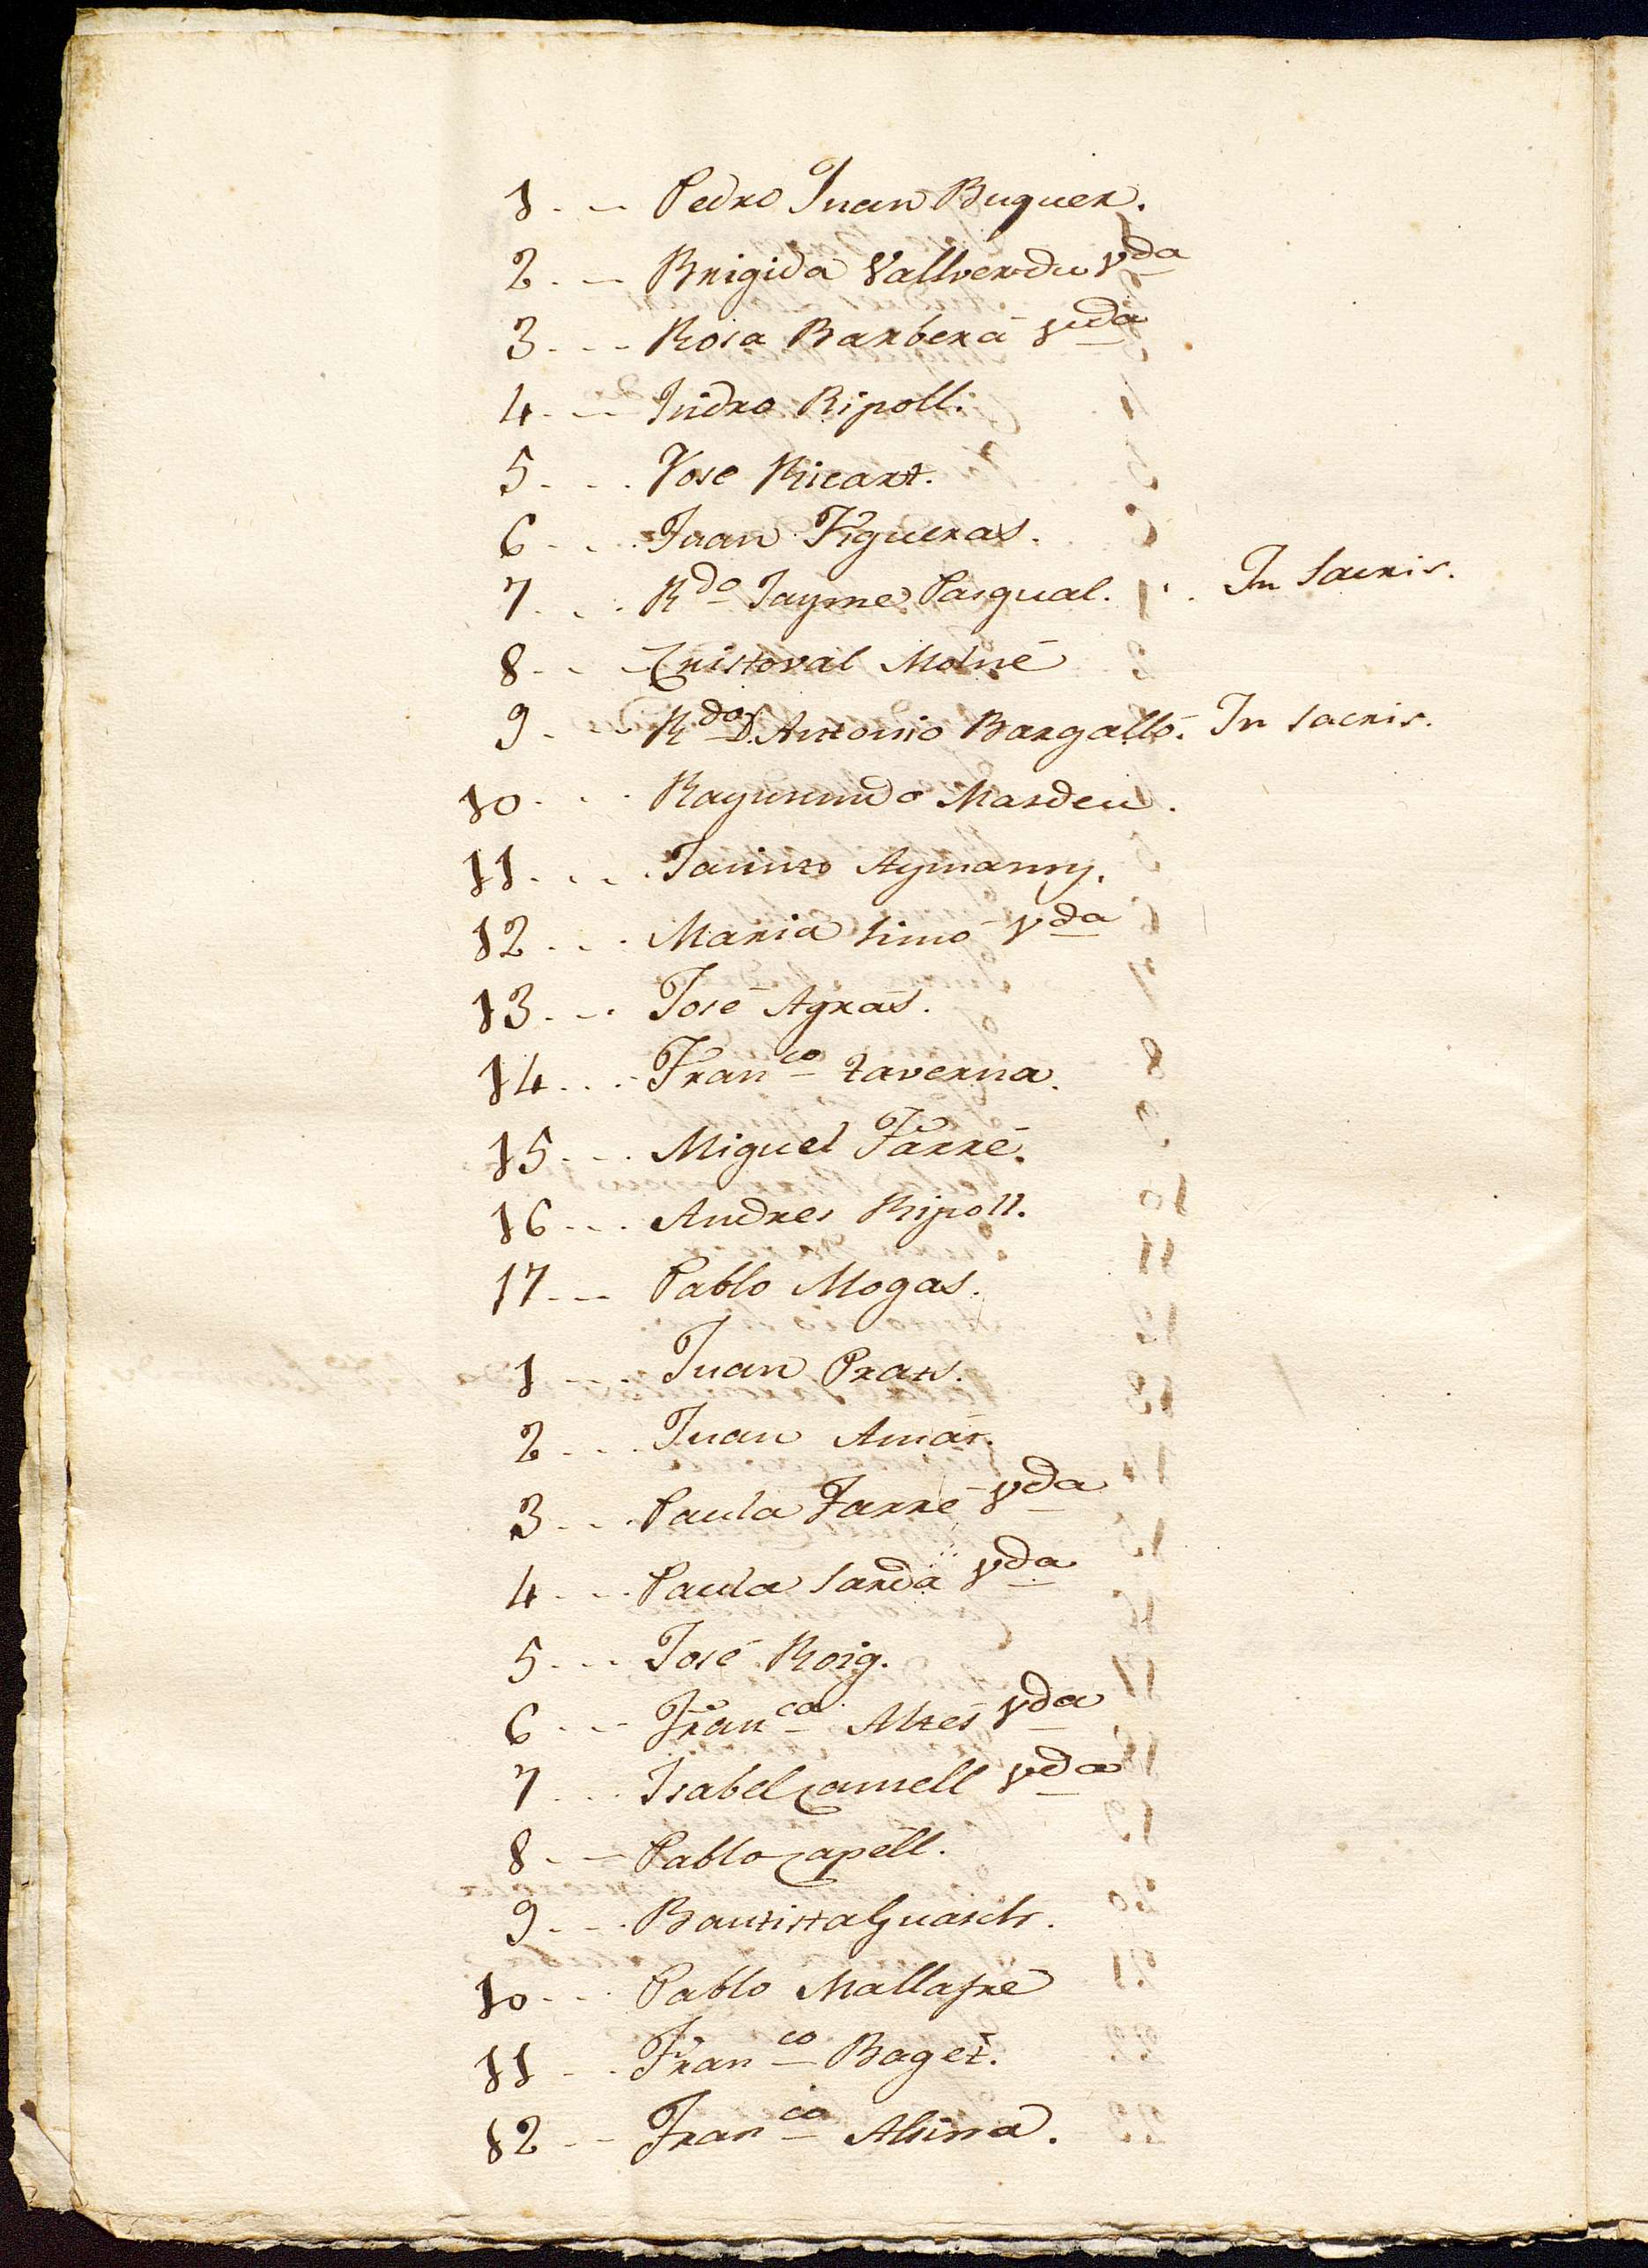 1 - - Pedro Juan Buquer.
2 - - Brigida Vallverdu Vda
3 - - - Rosa Barberá Vuda
4 - - - Isidro Ripoll.
5 - - . Jose Ricart.
6 - - . Juan Figueras.
7 - - . Rdo Jayme Pasqual. . . In Sacris.
8 - - - Cristoval Molné
9 - - - Rdo Dn. Antonio Bargalló. In Sacris.
10 - - - Raymundo Masdeu.
11 - - - Jacinto Aymamy.
12 - - - Maria Simó Vda
13 - - . José Agrás.
14 - - - Franco Taverna.
15 - - - Miguel Farré.
16 - - - Andres Ripoll.
17 - - - Pablo Mogas.
1 - - - Juan Prats.
2 - - - Juan Amár.
3 - - - Paula Farré Vda
4 - - - Paula Sardá Vda
5 - - - José Roig.
6 - - - Franca Altés Vda
7 - - - Isabel Camell Vda
8 - - - Pablo Capéll.
9 - - - Bautista Guasch.
10 - - - Pablo Mallafré
11 - - - Franco Baget.
12 - - Franco Alsina.